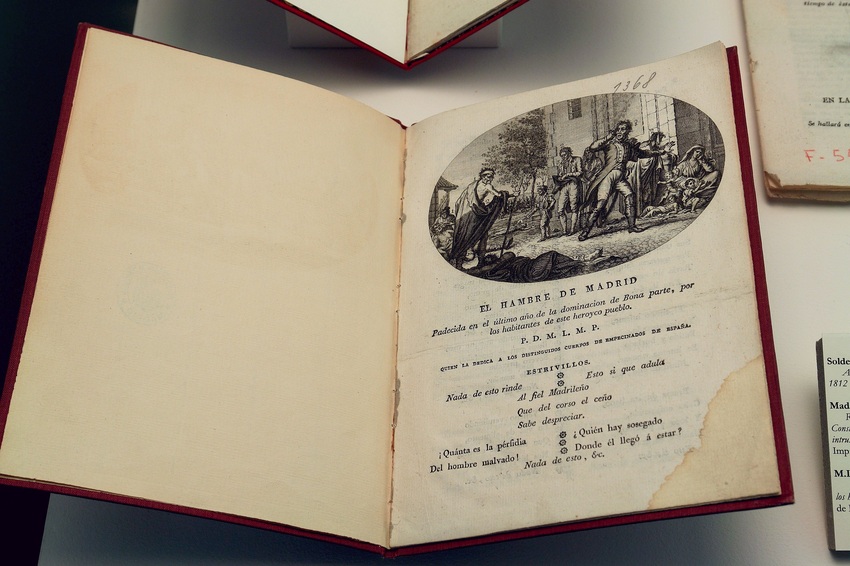 1368
EL HAMBRE DE MADRID
Padecida en el último año de la dominacion de Bona parte, por
los habitantes de este heroyco pueblo.
P. D. M. L. M. P.
QUIEN LA DEDICA A LOS DISTINGUIDOS CUERPOS DE EMPECINADOS DE ESPAÑA.
ESTRIVILLOS.
Nada de esto rinde
Esto si que adula
Al fiel Madrileño
Que del corso el ceño
Sabe despreciar.
¡Quánta es la pérfidia
Del hombre malvado!
¿Quién hay sosegado
Donde él llegó á estar?
Nada de esto, &c.
EN LA
Se hallará
F-5
Solde
A
1812
Mad
R
Const
intru
Imp
M.I
los h
de